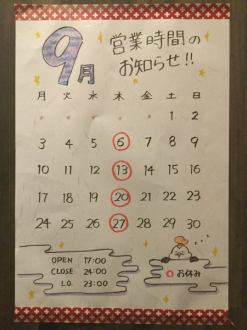 9月
営業時間の
お知らせ!!
月 火 水 木 金 土 日
1 2
3 4 5 6 7 8 9
10 11 12 13 14 15 16
17 18 19 20 21 22 23
24 25 26 27 28 29 30
OPEN 17:00
CLOSE 24:00
L.O. 23:00
○ お休み